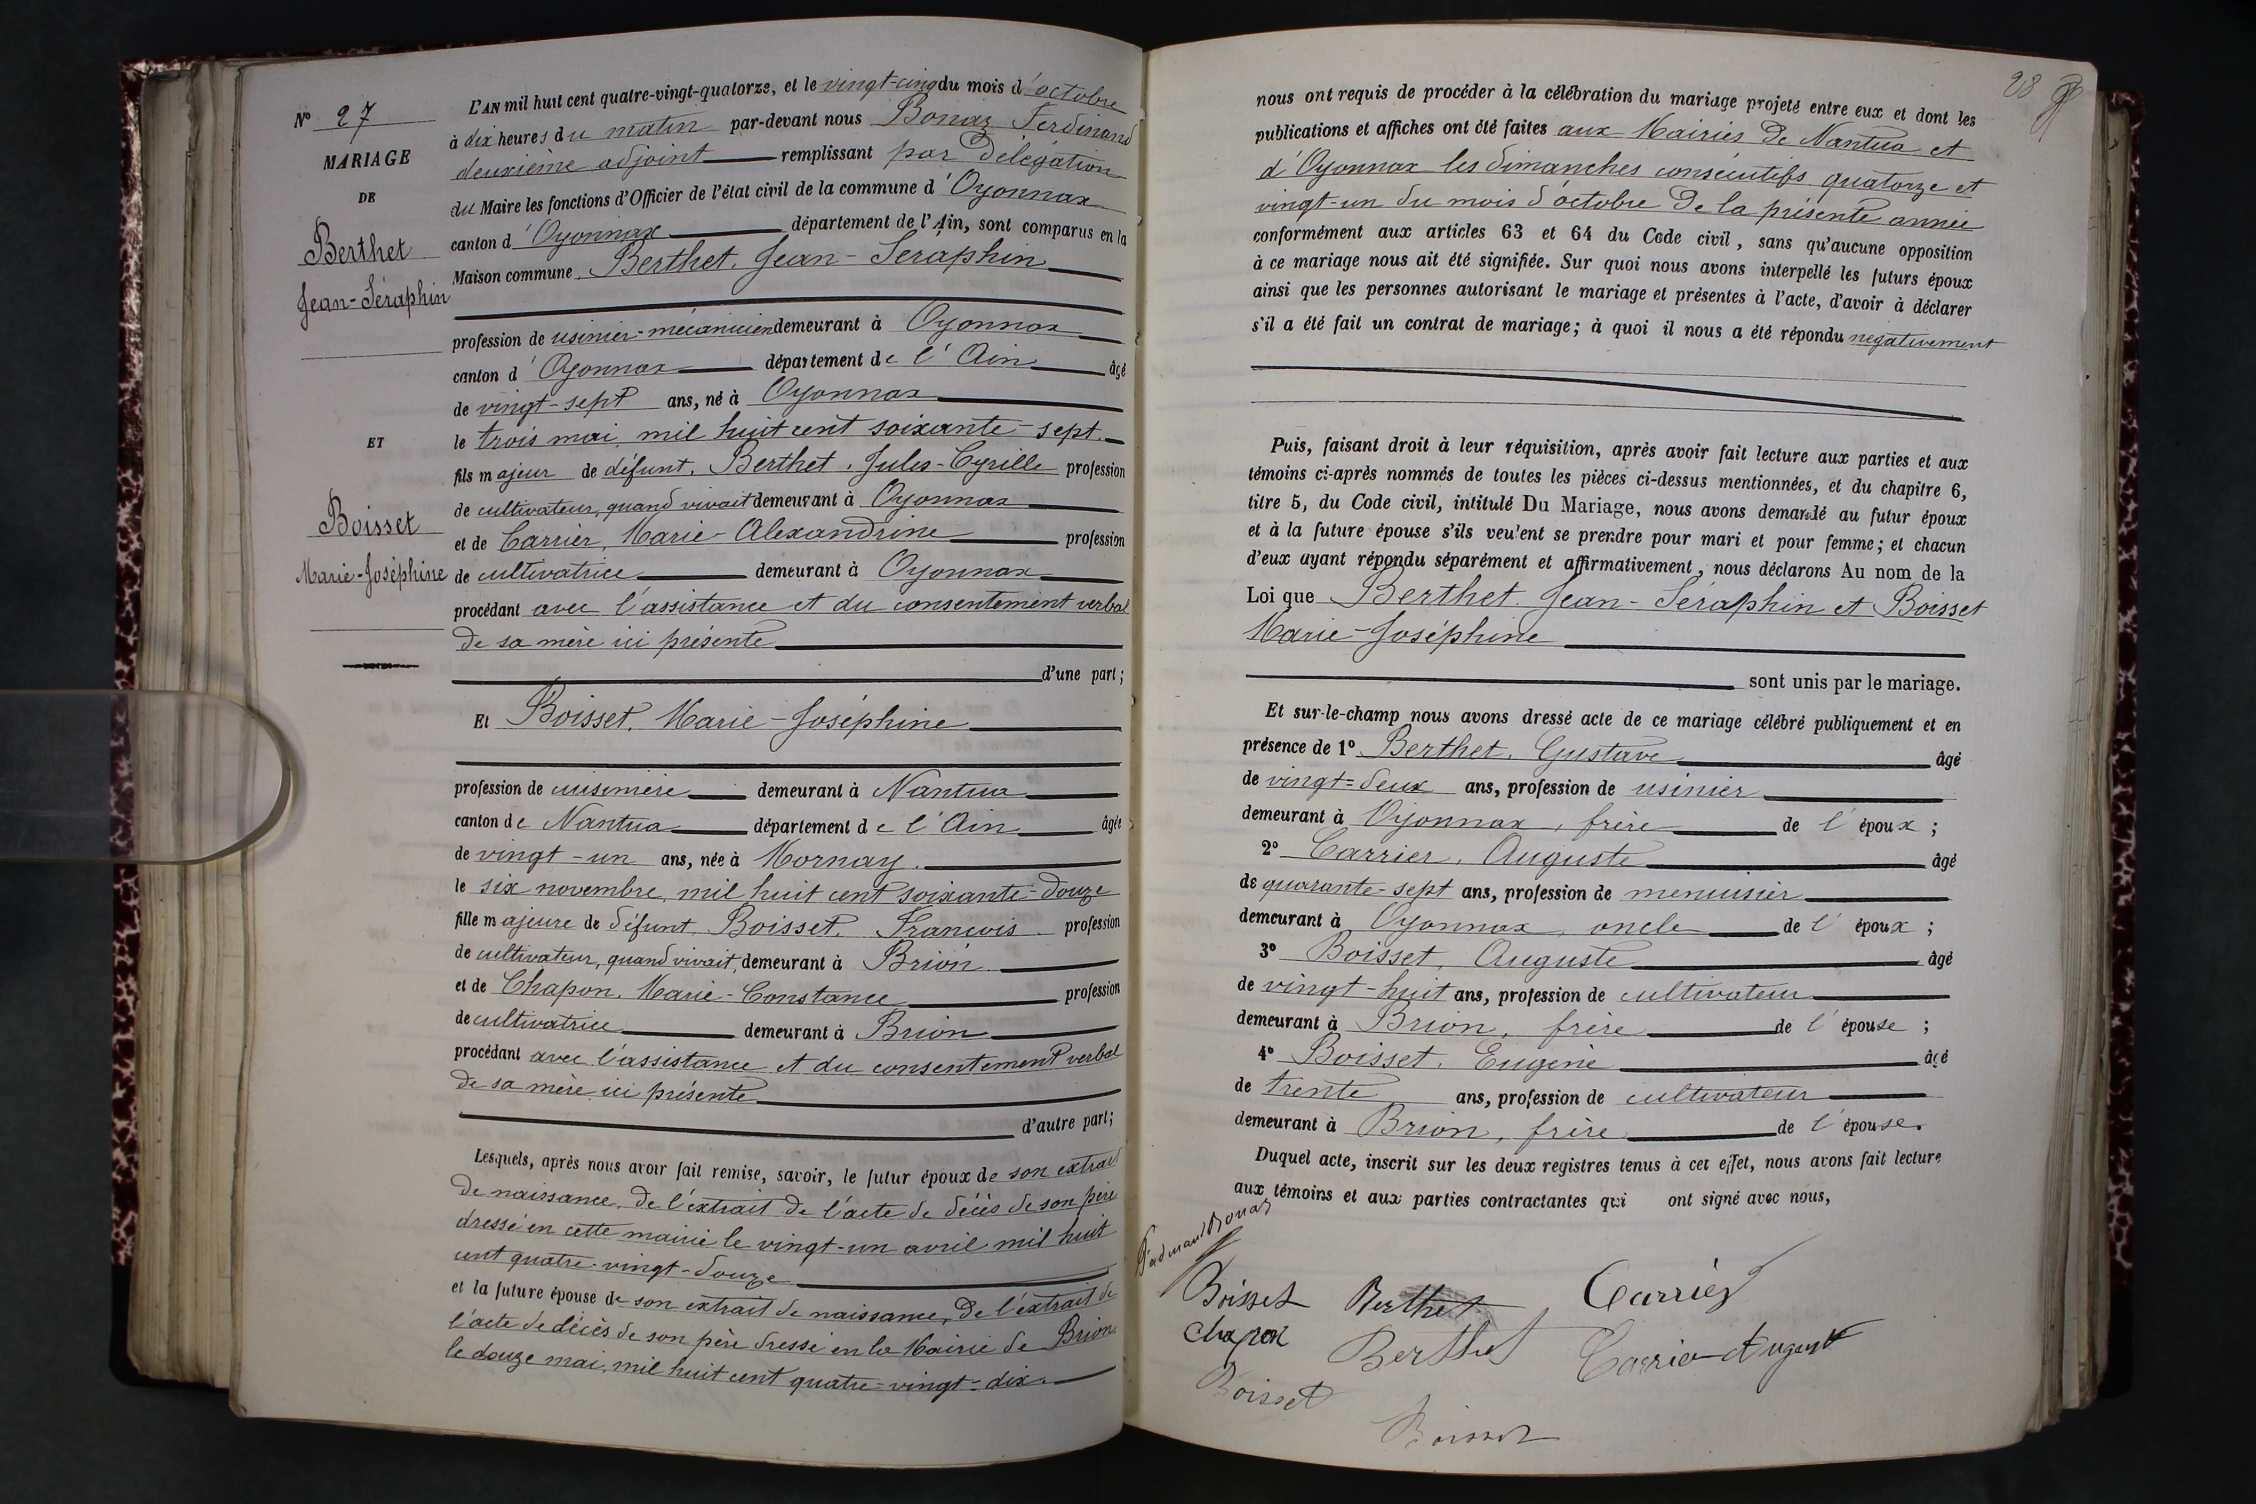 N° 27
MARIAGE
DE
Berthet
Jean-Séraphin
ET
Boisset
Marie-Joséphine
L'AN mil huit cent quatre-vingt-quatorze, et le vingt-cinq du mois d'octobre
à dix heures du matin par-devant nous Bonaz Ferdinand
deuxième adjoint remplissant par Délégation
du Maire les fonctions d'Officier de l'état civil de la commune d'Oyonnax
canton d'Oyonnax département de l'Ain, sont comparus en la
Maison commune Berthet, Jean-Séraphin
profession de usinier-mécanicien demeurant à Oyonnax
canton d'Oyonnax département de l'Ain âgé
de vingt-sept ans, né à Oyonnax
le trois mai, mil huit cent soixante-sept
fils majeur de défunt, Berthet, Jules-Cyrille profession
de cultivateur, quand vivait demeurant à Oyonnax
et de Carrier, Marie-Alexandrine profession
de cultivatrice demeurant à Oyonnax
procédant avec l'assistance et du consentement verbal
de sa mère ici présente
d'une part;
Et Boisset, Marie-Joséphine
profession de cuisinière demeurant à Nantua
canton de Nantua département de l'Ain âgée
de vingt-un ans, née à Mornay
le six novembre, mil huit cent soixante-douze
fille majeure de défunt Boisset, François profession
de cultivateur, quand vivait, demeurant à Brion
et de Chapon, Marie-Constance profession
de cultivatrice demeurant à Brion
procédant avec l'assistance et du consentement verbal
de sa mère ici présente
d'autre part;
Lesquels, après nous avoir fait remise, savoir, le futur époux de son extrait
de naissance, de l'extrait de l'acte de décès de son père
dressé en cette mairie le vingt-un avril mil huit
cent quatre-vingt-douze
et la future épouse de son extrait de naissance, de l'extrait de
l'acte de décès de son père dressé en la Mairie de Brion
le douze mai, mil huit cent quatre-vingt-dix.
28
nous ont requis de procéder à la célébration du mariage projeté entre eux et dont les
publications et affiches ont été faites aux Mairies de Nantua et
d'Oyonnax les dimanches consécutifs quatorze et
vingt-un du mois d'octobre de la présente année
conformément aux articles 63 et 64 du Code civil, sans qu'aucune opposition
à ce mariage nous ait été signifiée. Sur quoi nous avons interpellé les futurs époux
ainsi que les personnes autorisant le mariage et présentes à l'acte, d'avoir à déclarer
s'il a été fait un contrat de mariage; à quoi il nous a été répondu négativement
Puis, faisant droit à leur réquisition, après avoir fait lecture aux parties et aux
témoins ci-après nommés de toutes les pièces ci-dessus mentionnées, et du chapitre 6,
titre 5, du Code civil, intitulé Du Mariage, nous avons demandé au futur époux
et à la future épouse s'ils veulent se prendre pour mari et pour femme; et chacun
d'eux ayant répondu séparément et affirmativement, nous déclarons Au nom de la
Loi que Berthet, Jean-Séraphin et Boisset
Marie-Joséphine
sont unis par le mariage.
Et sur-le-champ nous avons dressé acte de ce mariage célébré publiquement et en
présence de 1° Berthet, Gustave âgé
de vingt-deux ans, profession de usinier
demeurant à Oyonnax, frère de l'époux;
2° Carrier, Auguste âgé
de quarante-sept ans, profession de menuisier
demeurant à Oyonnax, oncle de l'époux;
3° Boisset, Auguste âgé
de vingt-huit ans, profession de cultivateur
demeurant à Brion, frère de l'épouse;
4° Boisset, Eugène âgé
de trente ans, profession de cultivateur
demeurant à Brion, frère de l'épouse.
Duquel acte, inscrit sur les deux registres tenus à cet effet, nous avons fait lecture
aux témoins et aux parties contractantes qui ont signé avec nous,
Ferdinand Bonaz
Boisset Berthet Carrier
Chapon Berthet Carrier Auguste
Boisset
Boisset